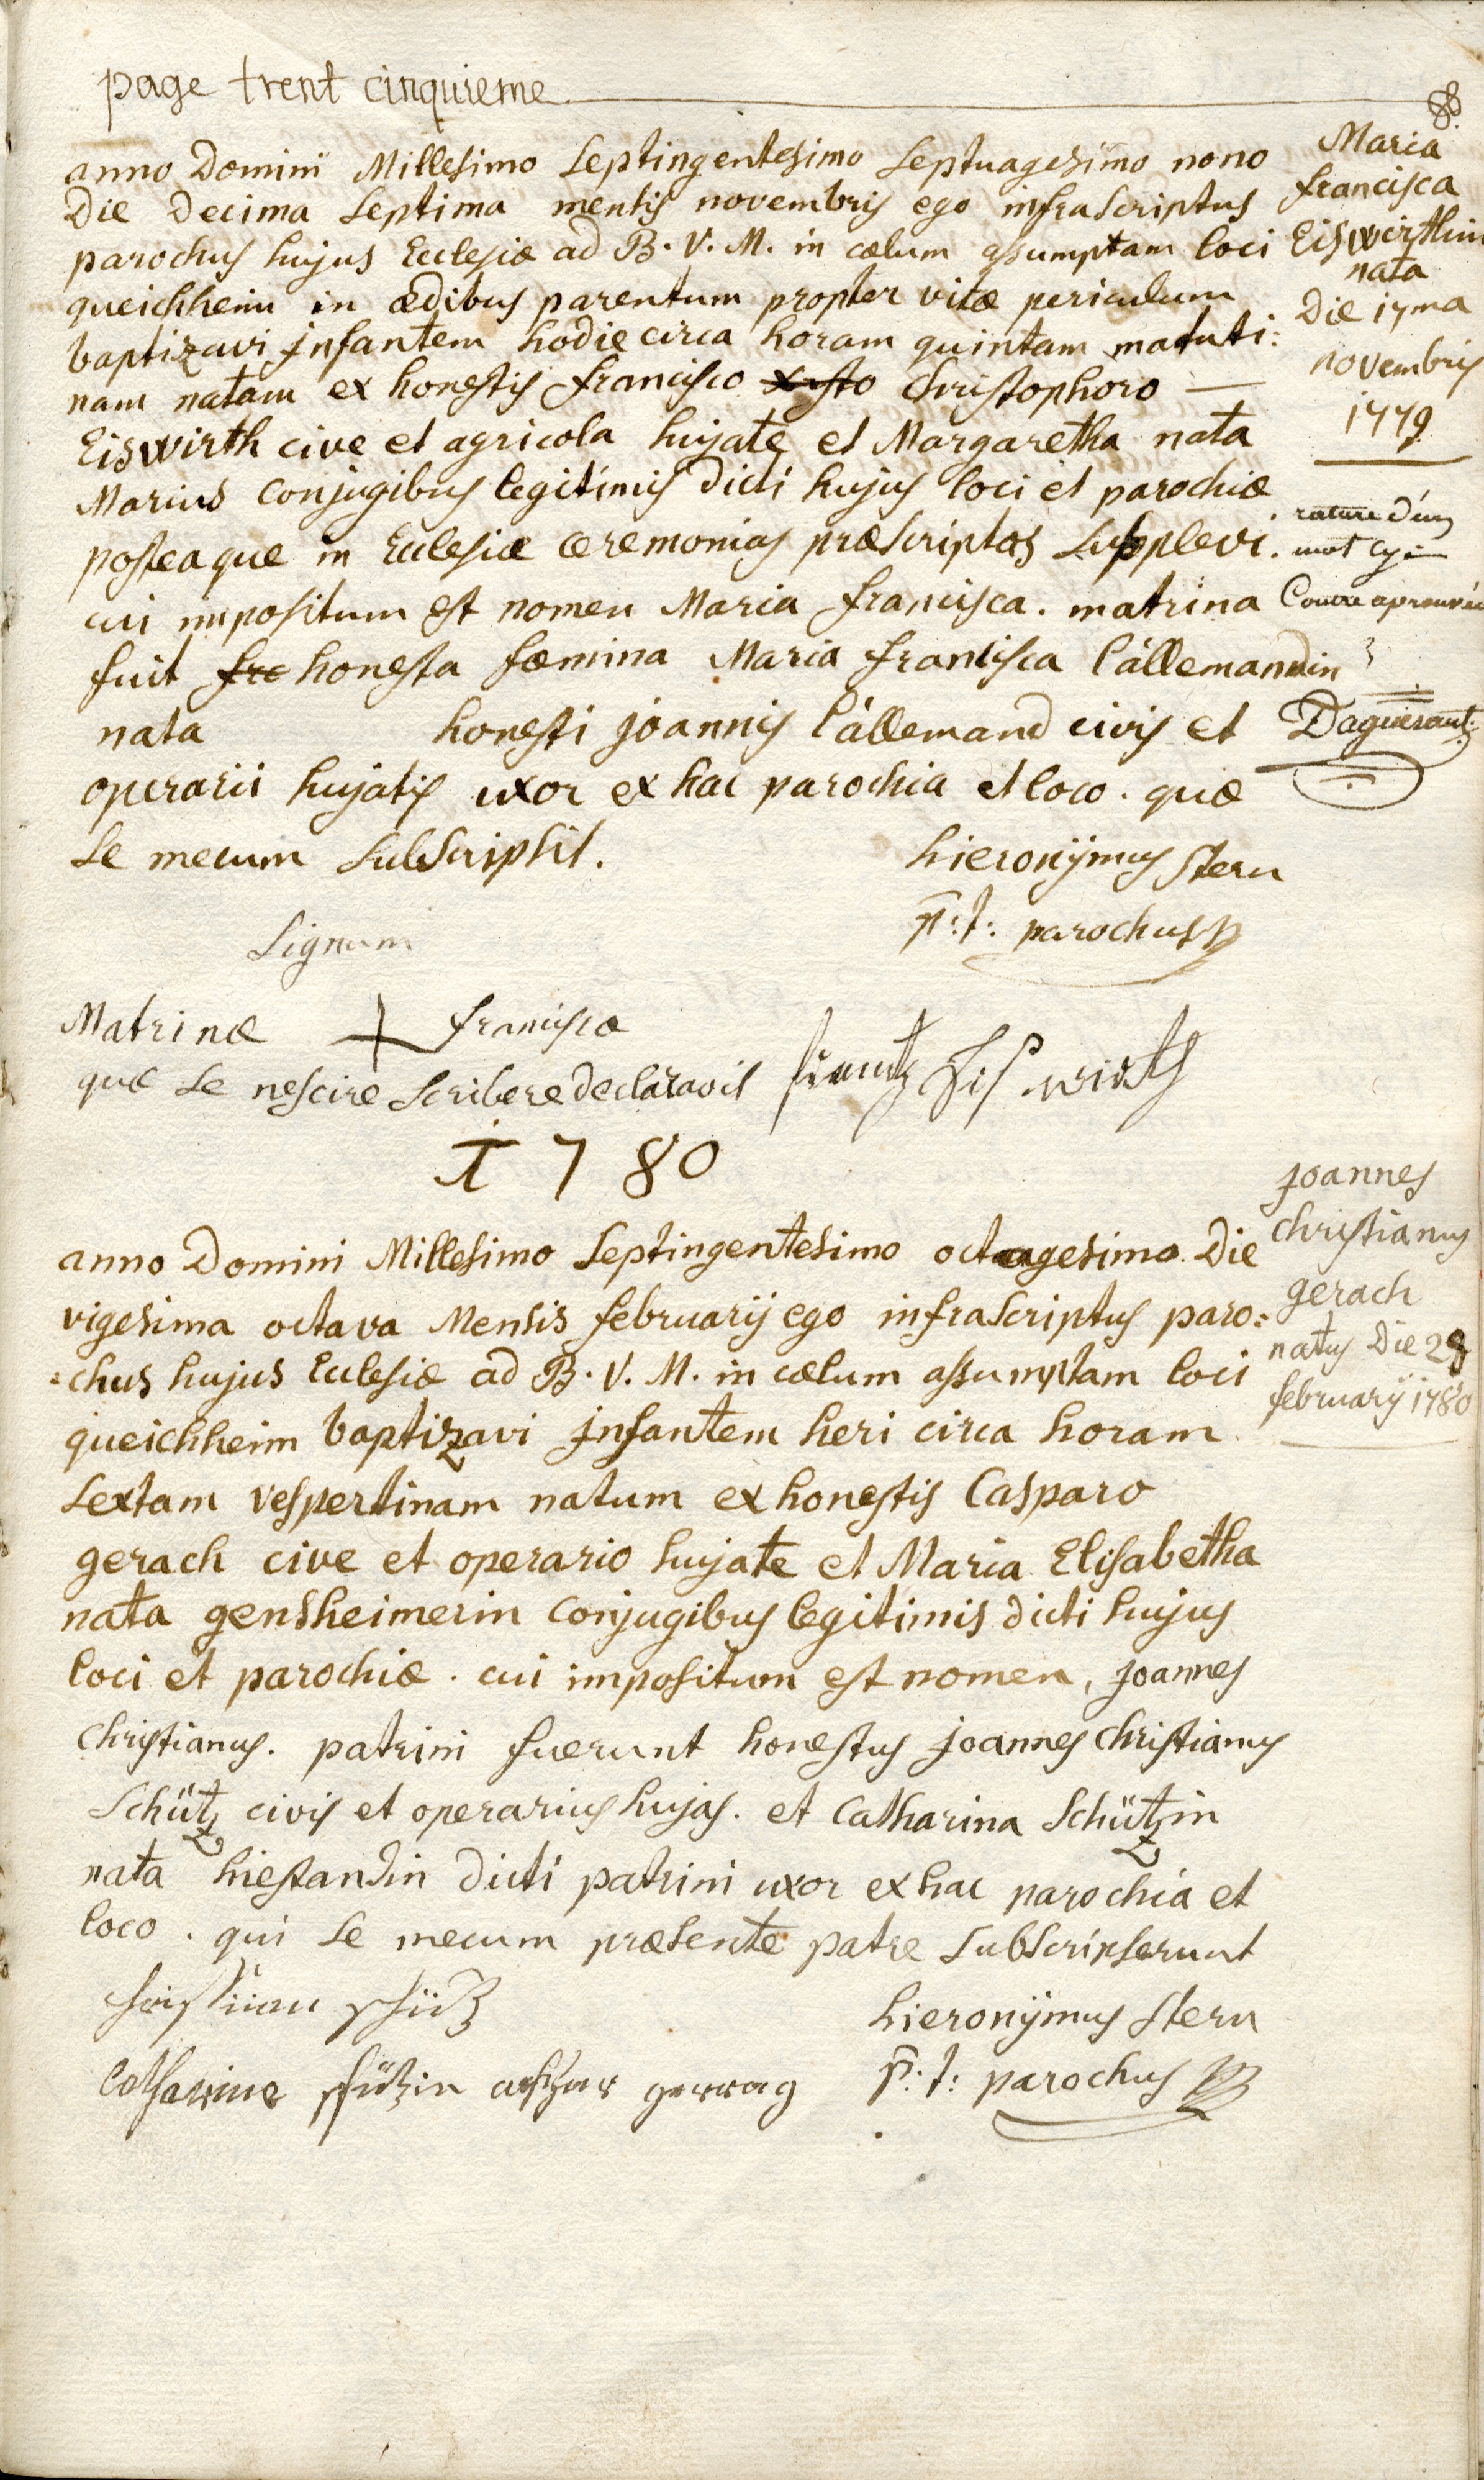 page trent cinquieme
anno Domini Millesimo Septingentesimo Septuagesimo nono
Die Decima Septima mensis novembris ego infrascriptus
parochus hujus Ecclesiæ ad B. V. M. in cælum assumptam loci
queichheim in ædibus parentum propter vitæ periculum
baptizavi jnfantem hodie circa horam quintam matuti:
nam natam ex honestis francisco xisto christophoro
Eiswirth cive et agricola hujate et Margaretha nata
Marius conjugibus legitimis dicti hujus loci et parochiæ
posteaque in Ecclesiæ ceremonias præscriptas supplevi.
cui impositum est nomen Maria francisca. matrina
fuit frc honesta fœmina Maria francisca l'allemandin
nata honesti joannis l'allemand civis et
operarii hujatis uxor ex hac parochia et loco. quæ
se mecum subscripsit.
hieronÿmus stern
p:t: parochus
Maria
francisca
Eiswirthin
nata
Die 17ma
novembris
1779
rature d'un
mot cy
Contre aprouvée
Daguesant
Signum
Matrinæ + franciscæ
quæ se nescire scribere declaravit
frantz Eiswirth
1780
anno Domini Millesimo Septingentesimo octuagesimo Die
vigesima octava Mensis februarij ego infrascriptus paro:
:chus hujus Ecclesiæ ad B. V. M. in cælum assumptam loci
queichheim baptizavi jnfantem heri circa horam
sextam vespertinam natum ex honestis Casparo
gerach cive et operario hujate et Maria Elisabetha
nata gensheimerin conjugibus legitimis dicti hujus
loci et parochiæ. cui impositum est nomen, joannes
christianus. patrini fuerunt honestus joannes christianus
Schütz civis et operarius hujas. et Catharina Schützin
nata hiestandin dicti patrini uxor ex hac parochia et
loco. qui se mecum præsente patre subscripserunt
joannes
christianus
gerach
natus Die 28
februarij 1780
christian schütz
hieronÿmus stern
Catharina schützin gerrag
p:t: parochus